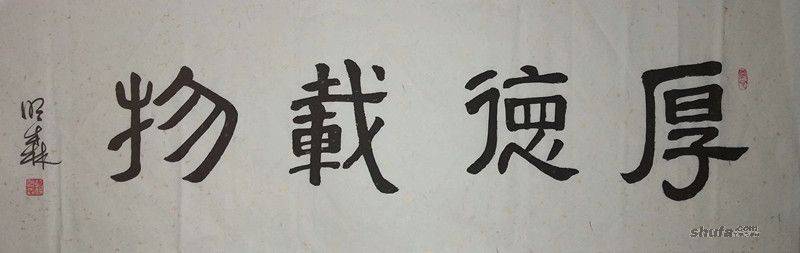 厚德載物
明森
shufa.com